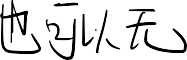 也可以无